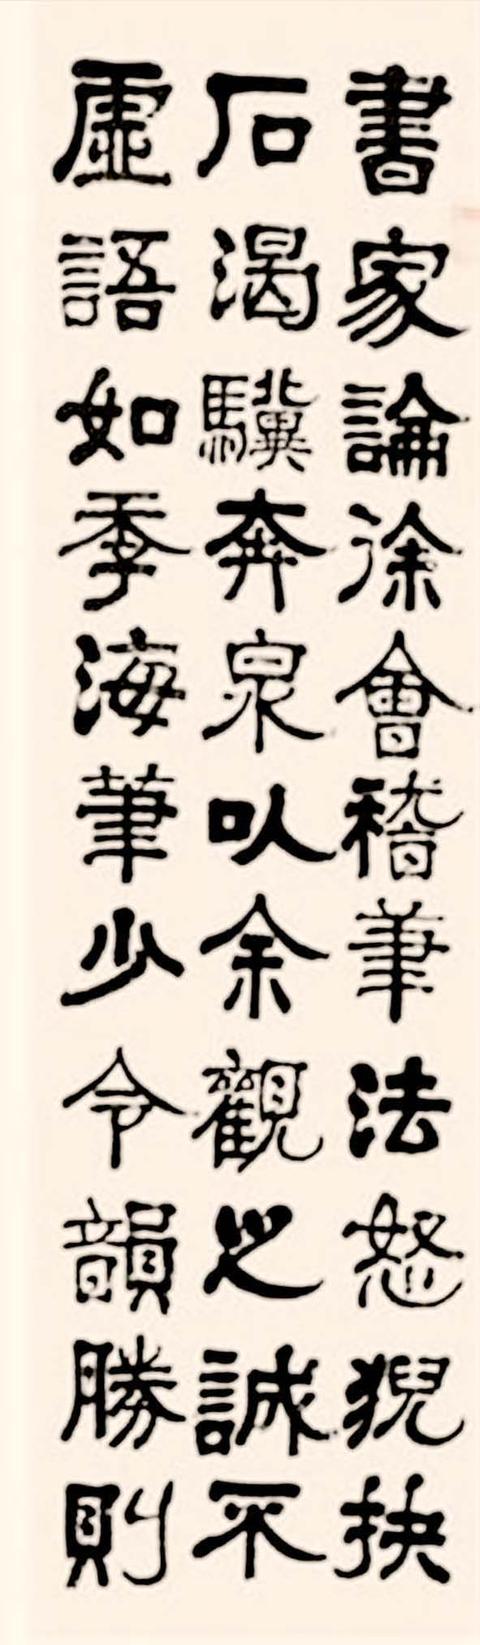 書家論徐會稽筆法怒猊抉
石渴驥奔泉以余觀之誠不
虛語如季海筆少令韻勝則